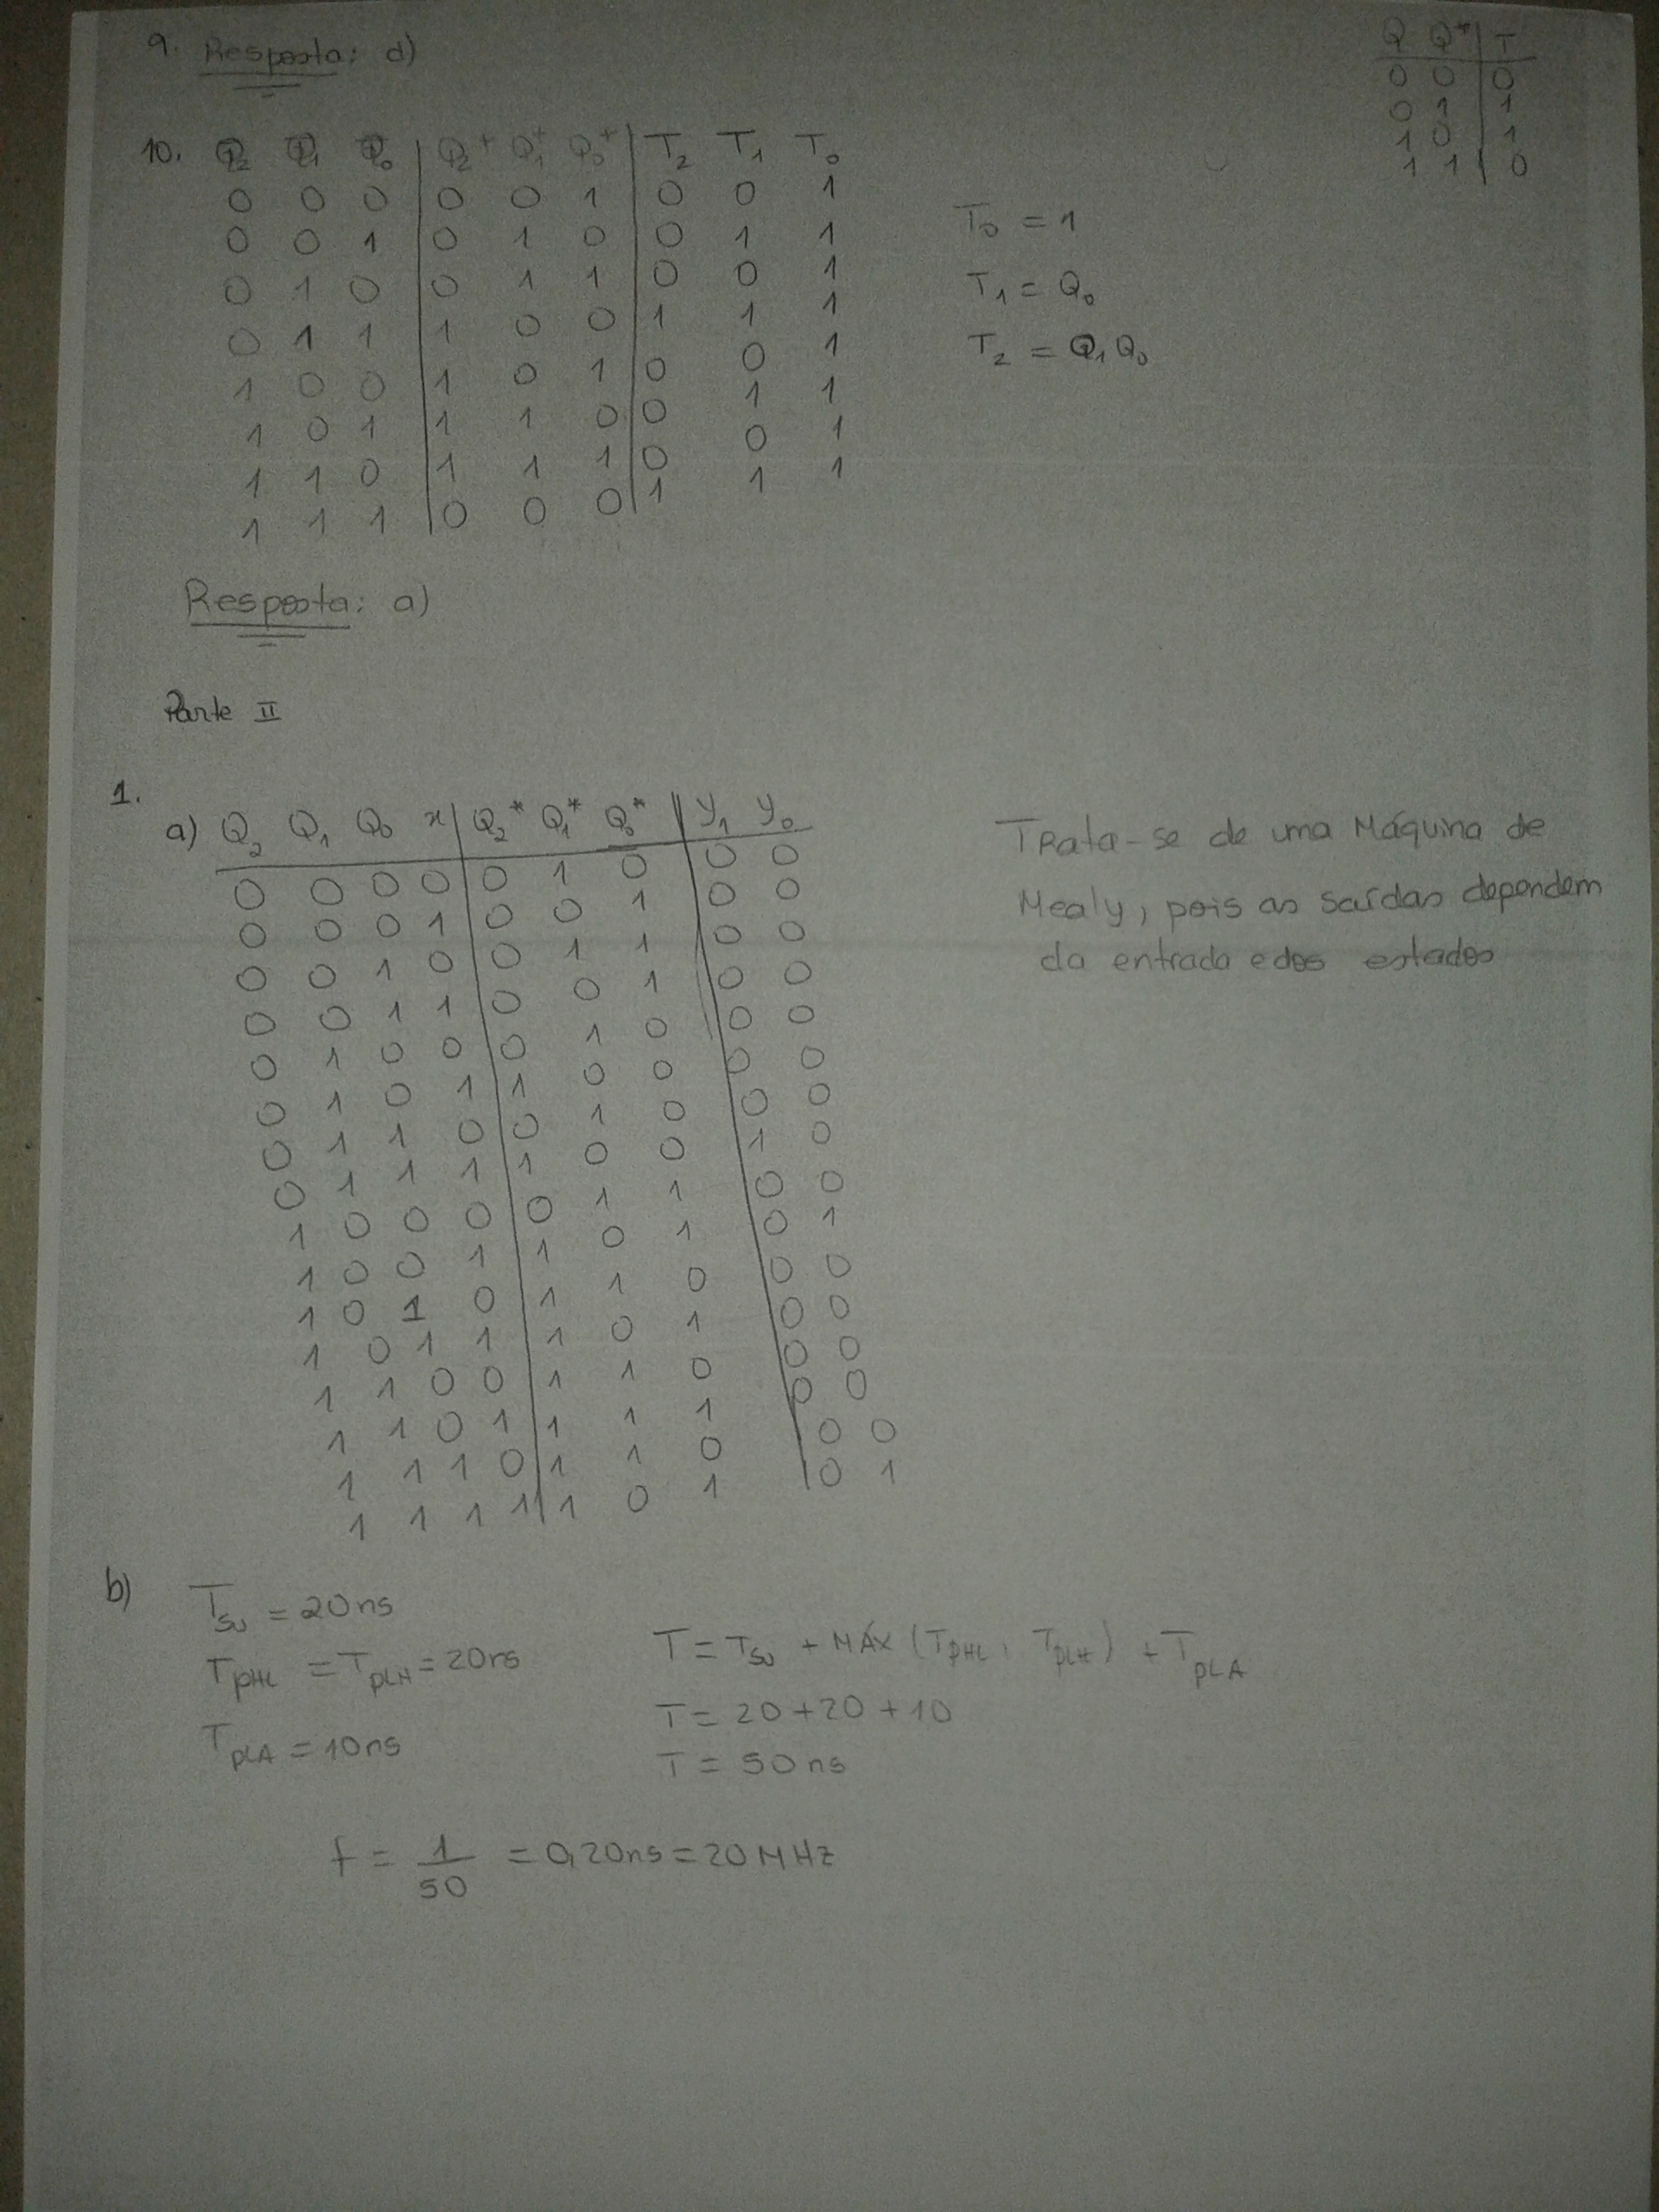 9. Resposta: d)
Q Q* T
0 0 0
0 1 1
1 0 1
1 1 0
10. Q2 Q1 Q0 | Q2+ Q1+ Q0+ | T2 T1 T0
0 0 0 | 0 0 1 | 0 0 1
0 0 1 | 0 1 0 | 0 1 1
0 1 0 | 0 1 1 | 0 0 1
0 1 1 | 1 0 0 | 1 1 1
1 0 0 | 1 0 1 | 0 0 1
1 0 1 | 1 1 0 | 0 1 1
1 1 0 | 1 1 1 | 0 0 1
1 1 1 | 0 0 0 | 1 1 1
T0 = 1
T1 = Q0
T2 = Q1 Q0
Resposta: a)
Parte II
1.
a) Q2 Q1 Q0 x | Q2* Q1* Q0* || y1 y0
0 0 0 0 | 0 1 0 | 0 0
0 0 0 1 | 0 0 1 | 0 0
0 0 1 0 | 0 1 1 | 0 0
0 0 1 1 | 0 0 1 | 0 0
0 1 0 0 | 0 1 0 | 0 0
0 1 0 1 | 1 0 0 | 0 0
0 1 1 0 | 0 1 0 | 0 0
0 1 1 1 | 1 0 0 | 1 0
1 0 0 0 | 0 1 1 | 0 0
1 0 0 1 | 1 0 1 | 0 1
1 0 1 0 | 1 1 0 | 0 0
1 0 1 1 | 1 0 1 | 0 0
1 1 0 0 | 1 1 0 | 0 0
1 1 0 1 | 1 1 1 | 0 0
1 1 1 0 | 1 1 0 | 0 0
1 1 1 1 | 1 0 1 | 0 1
Trata-se de uma Máquina de
Mealy, pois as saídas dependem
da entrada e dos estados
b)
Tsu = 20ns
TpHL = TpLH = 20ns
TpLA = 10ns
T = Tsu + MÁX (TpHL, TpLH) + TpLA
T = 20+20+10
T = 50ns
f = 1/50 = 0,20ns = 20MHz